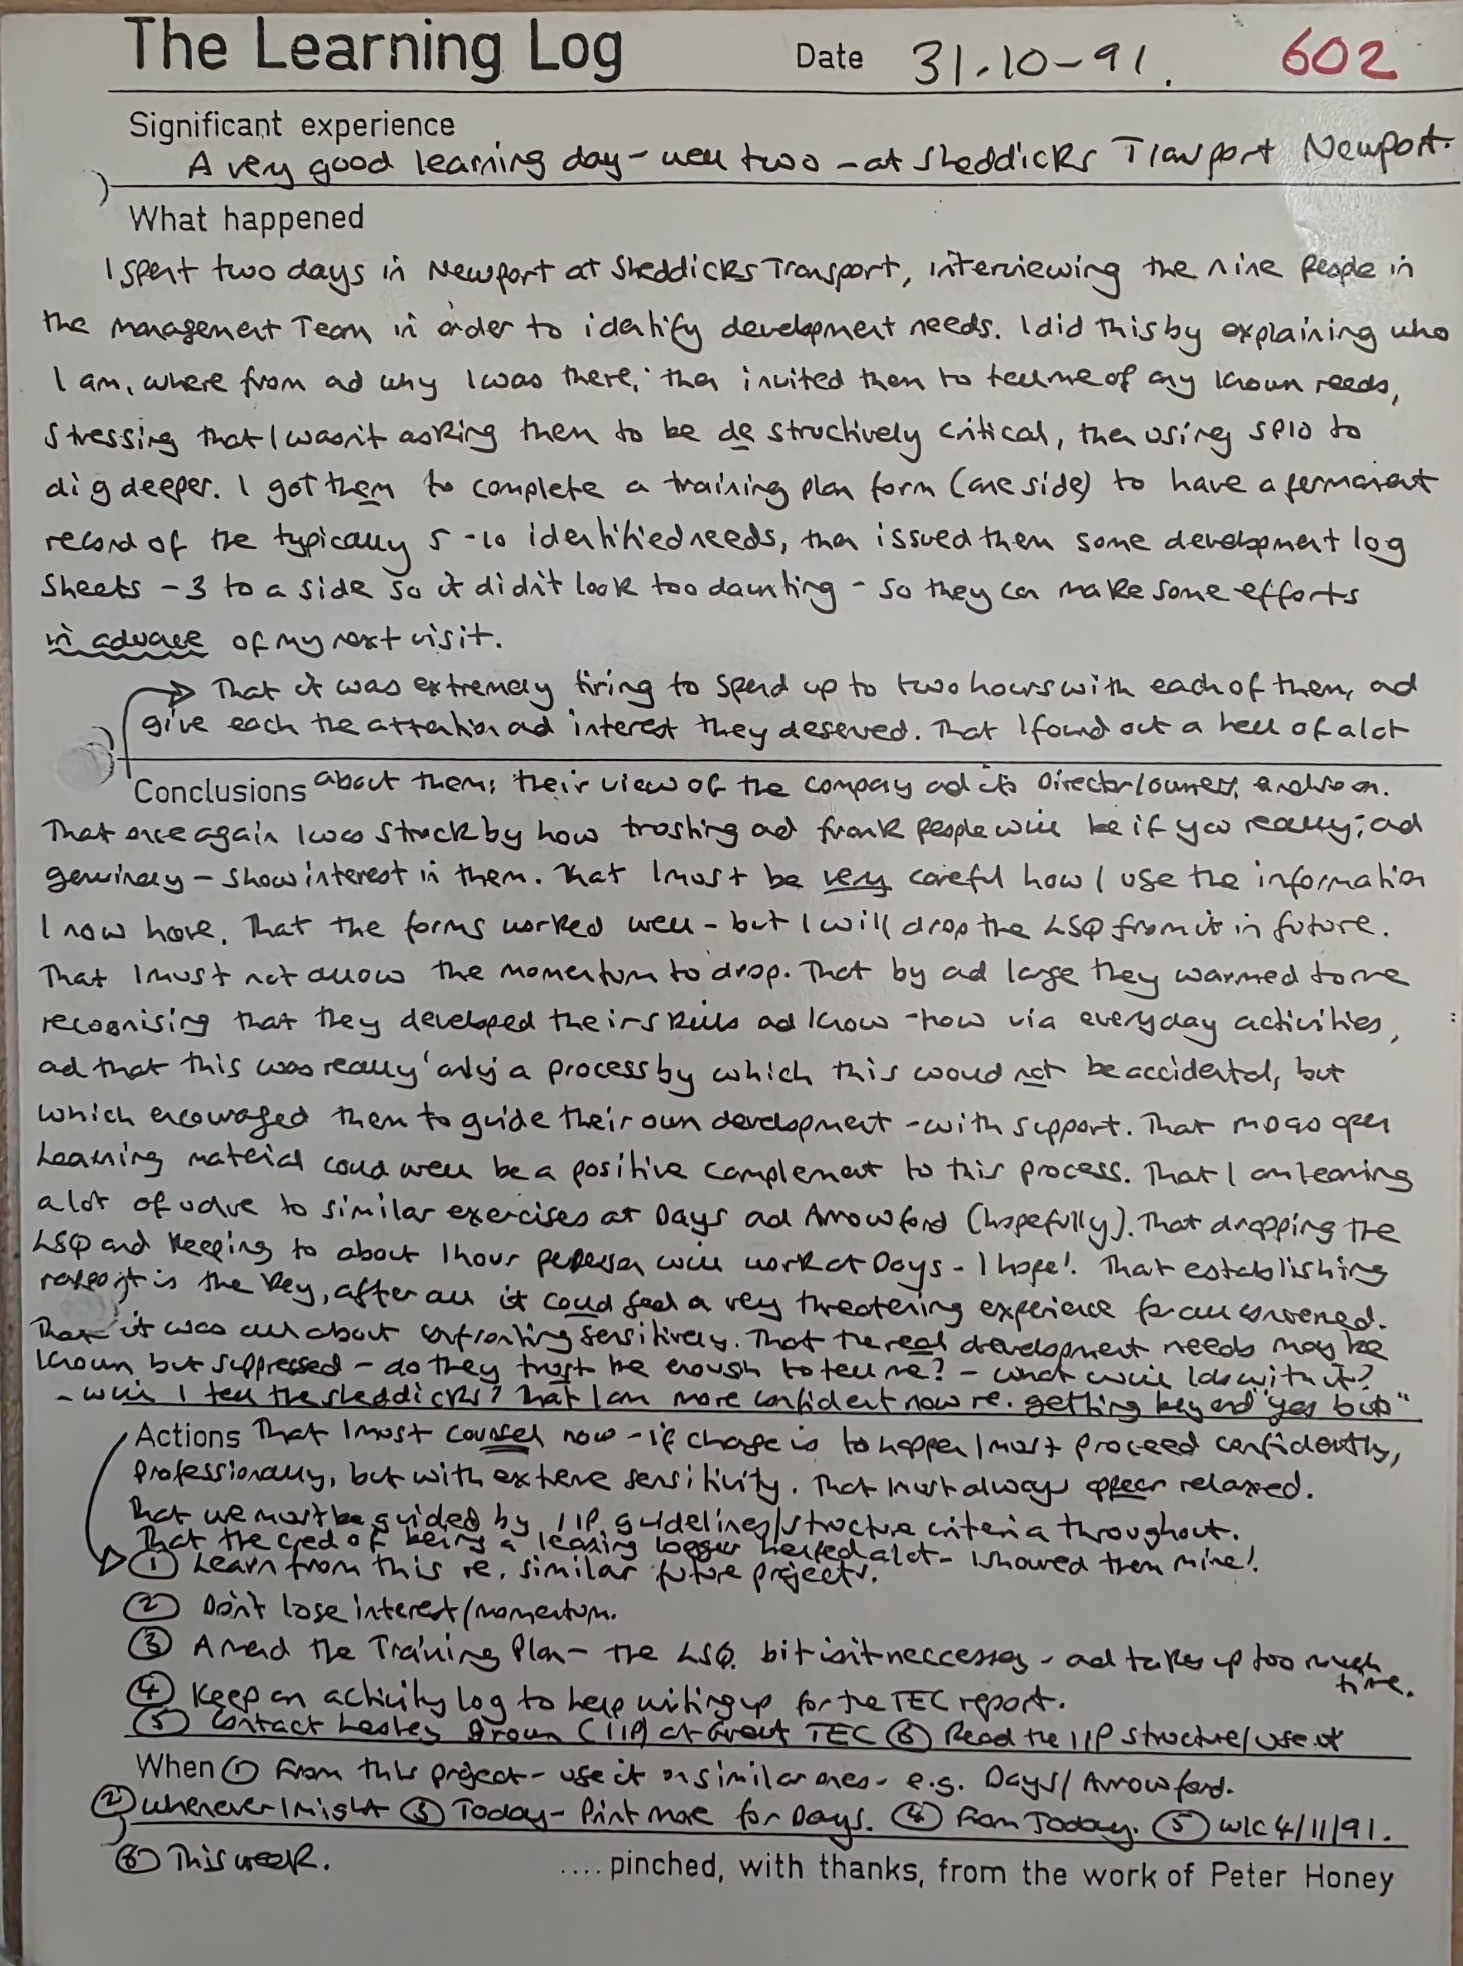 The Learning Log Date 31.10-91. 602
Significant experience
A very good learning day - well two - at Sheddicks Transport Newport.
What happened
I spent two days in Newport at Sheddicks Transport, interviewing the nine people in
the management Team in order to identify development needs. I did this by explaining who
I am, where from ad why I was there, then invited them to tell me of any known needs,
stressing that I wasn't asking them to be destructively critical, then using SP10 to
dig deeper. I got them to complete a training plan form (one side) to have a permanent
record of the typically 5-10 identified needs, then issued them some development log
sheets - 3 to a side so it didn't look too daunting - so they can make some efforts
in advance of my next visit.
That it was extremely tiring to spend up to two hours with each of them, ad
give each the attention ad interest they deserved. That I found out a hell of a lot
Conclusions about them; their view of the company ad its Director/owners, and so on.
That once again I was struck by how trusting ad frank people will be if you really; ad
genuinely - show interest in them. That I must be very careful how I use the information
I now have. That the forms worked well - but I will drop the LSQ from it in future.
That I must not allow the momentum to drop. That by ad large they warmed to me
recognising that they developed their skills ad know-how via everyday activities,
ad that this was really 'only' a process by which this would not be accidental, but
which encouraged them to guide their own development - with support. That open
Learning material could well be a positive complement to this process. That I am learning
a lot of value to similar exercises at Days ad Arrowford (hopefully). That dropping the
LSQ and keeping to about 1 hour per person will work at Days - I hope! That establishing
rapport is the key, after all it could feel a very threatening experience for all concerned.
That it was all about confronting sensitively. That the real development needs may be
known but suppressed - do they trust me enough to tell me? - what will I do with it?
- will I tell the Sheddicks? That I am more confident now re. getting beyond "yes but"
Actions That I must counsel now - if change is to happen I must proceed confidently,
professionally, but with extreme sensitivity. That I must always appear relaxed.
That we must be guided by IIP guidelines/structure criteria throughout.
That the cred of being a learning logger helped a lot - I showed them mine!
① Learn from this re. similar future projects.
② Don't lose interest/momentum.
③ Amend the Training Plan - the LSQ. bit isn't neccessary - ad takes up too much
time.
④ Keep an activity log to help writing up for the TEC report.
⑤ Contact Lesley Brown (IIP) at Gwent TEC ⑥ Read the IIP structure/use it
When ① From this project - use it on similar ones - e.g. Days/Arrowford.
② Whenever I might ③ Today - Print more for Days. ④ From Today. ⑤ w/c 4/11/91.
⑥ This week. .... pinched, with thanks, from the work of Peter Honey